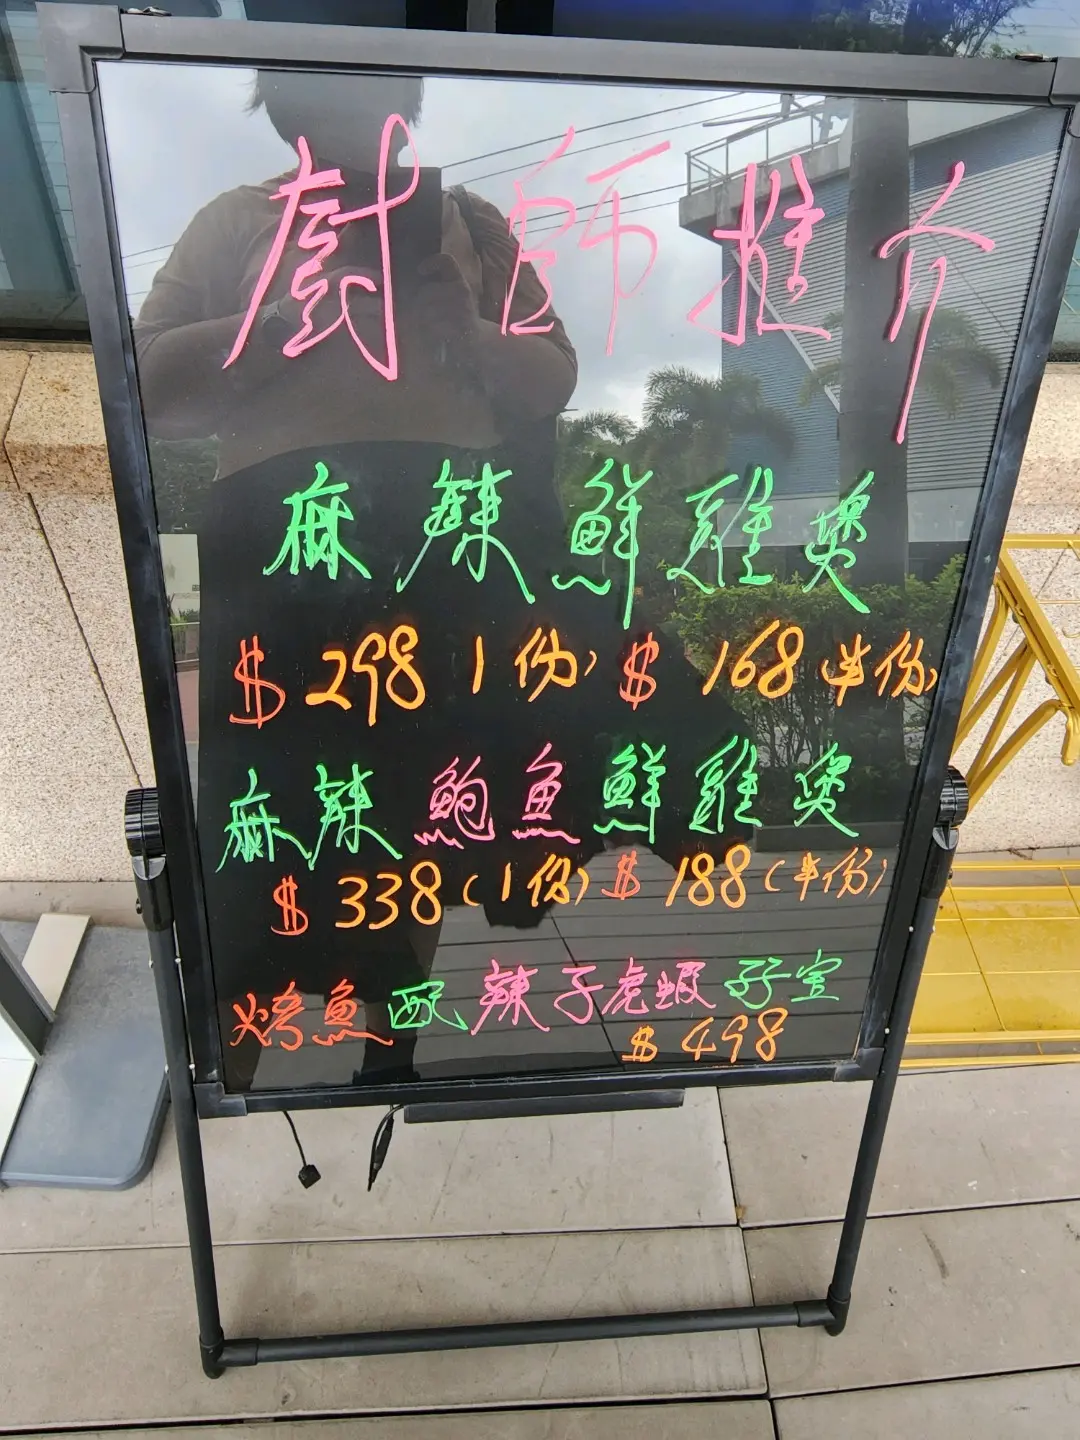 廚師推介
麻辣鮮雞煲
$298 1份, $168 半份,
麻辣鮑魚鮮雞煲
$338(1份) $188(半份)
烤魚配辣子虎蝦孖宝
$498